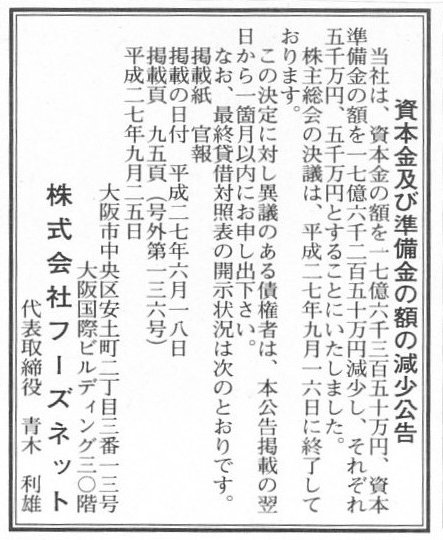 資本金及び準備金の額の減少公告
当社は、資本金の額を一七億六千三百五十万円、資本
準備金の額を一七億六千二百五十万円減少し、それぞれ
五千万円、五千万円とすることにいたしました。
株主総会の決議は、平成二七年九月一六日に終了して
おります。
この決定に対し異議のある債権者は、本公告掲載の翌
日から一箇月以内にお申し出下さい。
なお、最終貸借対照表の開示状況は次のとおりです。
掲載紙　官報
掲載の日付　平成二七年六月一八日
掲載頁　九五頁（号外第一三六号）
平成二七年九月二五日
大阪市中央区安土町二丁目三番一三号
大阪国際ビルディング三〇階
株式会社フーズネット
代表取締役　青木　利雄